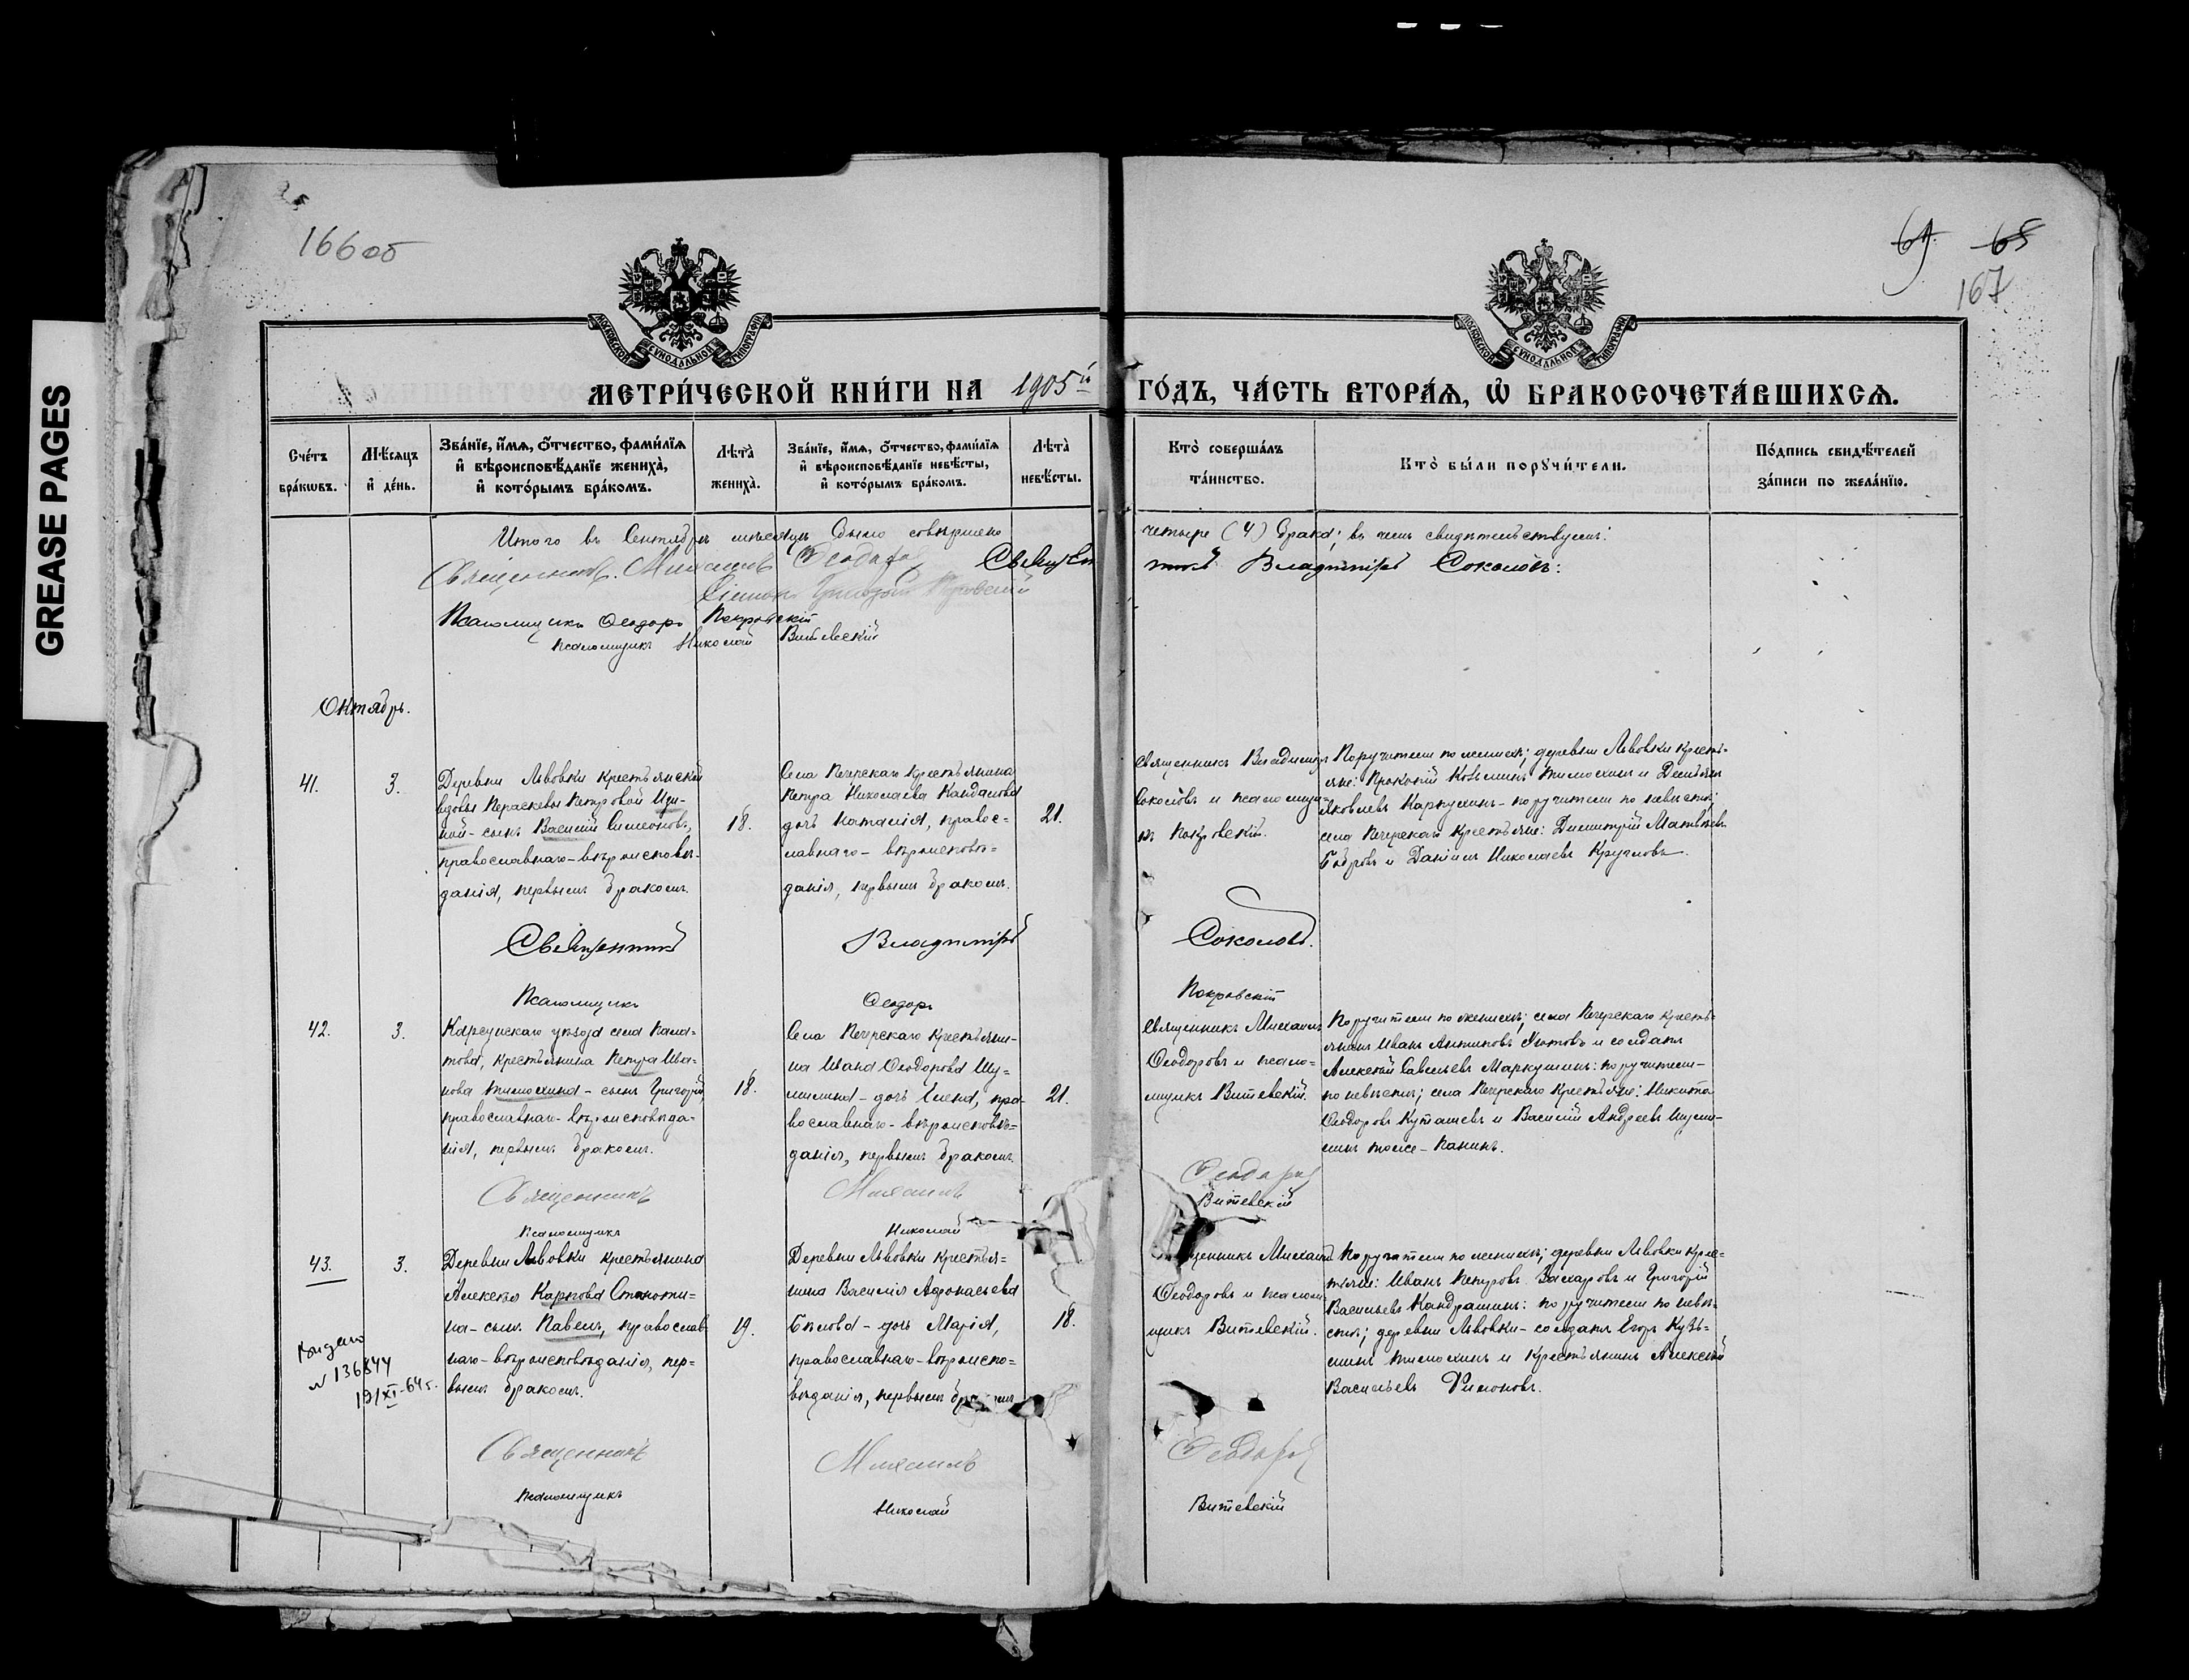 GREASE PAGES
166об
64 65
167
МОСКОВСКОЙ СУНОДАЛЬНОЙ ТИПОГРАФІИ
МОСКОВСКОЙ СУНОДАЛЬНОЙ ТИПОГРАФІИ
МЕТРИ́ЧЕСКОЙ КНИ́ГИ НА 1905й ГО́ДЪ, ЧА́СТЬ ВТОРА́Ѧ, Ѡ҆ БРАКОСОЧЕТА́ВШИХСѦ.
Сче́тъ бра́кѡвъ.
Мѣ́сѧцъ и҆ де́нь.
Зва́нїе, и҆́мѧ, ѻ҆́тчество, фами́лїѧ
и҆ вѣроисповѣ́данїе жениха̀,
и҆ кото́рымъ бра́комъ.
Лѣта̀ жениха̀.
Зва́нїе, и҆́мѧ, ѻ҆́тчество, фами́лїѧ
и҆ вѣроисповѣ́данїе невѣ́сты,
и҆ кото́рымъ бра́комъ.
Лѣта̀ невѣ́сты.
Кто̀ соверша́лъ та́инство.
Кто̀ бы́ли порꙋчи́тели.
По́дпись свидѣ́телей за́писи по жела́нїю.
Итого въ Сентябрѣ мѣсяцѣ было совершено четыре (4) брака; въ чемъ свидѣтельствуемъ:
Священникъ Михаилъ Ѳеодоровъ Священникъ Владиміръ Соколовъ:
Псаломщикъ Ѳеодоръ Покровскій
Псаломщикъ Николай Витевскій
Октябрь.
41.
3.
Деревни Львовки крестьянской
вдовы Параскевы Петровой
сынъ Василій Симеоновъ,
православнаго-вѣроисповѣ-
данія, первымъ бракомъ.
18.
Села Печерскаго крестьянина
Петра Николаева Кандалова
дочь Наталія, правос-
лавнаго-вѣроисповѣ-
данія, первымъ бракомъ.
21.
Священникъ Владиміръ
Соколовъ и псаломщи-
къ Покровскій.
Поручители по женихѣ; деревни Львовки кресть-
яне: Прокопій Козьминъ Тимохинъ и Деміянъ
Яковлевъ Карпухинъ-поручители по невѣстѣ;
села Печерскаго крестьяне: Димитрій Матвѣевъ
Бобровъ и Даніилъ Николаевъ Кругловъ.
Священникъ Владиміръ Соколовъ.
Псаломщикъ Ѳеодоръ Покровскій
42.
3.
Карсунскаго уѣзда села Пала-
това, крестьянина Петра Ива-
нова Тимохина-сынъ Григорій,
православнаго-вѣроисповѣда-
нія, первымъ бракомъ.
18.
Села Печерскаго крестьяни-
на Ивана Ѳеодорова Шу-
милина-дочь Елена, пра-
вославнаго-вѣроисповѣ-
данія, первымъ бракомъ.
21.
Священникъ Михаилъ
Ѳеодоровъ и псало-
мщикъ Витевскій.
Поручители по женихѣ; села Печерскаго кресть-
янинъ Иванъ Антиповъ и солдатъ
Алексѣй Савельевъ Маркушинъ: поручители-
по невѣстѣ; села Печерскаго крестьяне: Никита
Ѳеодоровъ Куташевъ и Василій Андреевъ Шуми-
линъ тоже-Панинъ.
Священникъ Михаилъ Ѳеодоровъ
Псаломщикъ Николай Витевскій
43.
3.
Выдано
N 136844
19/XI-64г.
Деревни Львовки крестьянина
Алексѣя Карпова Станоти-
на-сынъ Павелъ, православ-
наго-вѣроисповѣданія, пер-
вымъ бракомъ.
19.
Деревни Львовки крестья-
нина Василія Афонасьева
Бѣлова-дочь Марія,
православнаго-вѣроиспо-
вѣданія, первымъ бракомъ
18.
щенникъ Михаилъ
Ѳеодоровъ и псалом-
щикъ Витевскій.
Поручители по женихѣ; деревни Львовки крес-
тьяне: Иванъ Петровъ Захаровъ и Григорій
Васильевъ Кандрашинъ: поручители по невѣ-
стѣ; деревни Львовки-солдатъ Егоръ Кузь-
минъ Тимохинъ и крестьянинъ Алексѣй
Васильевъ Филоновъ.
Священникъ Михаилъ Ѳеодоровъ
Псаломщикъ Николай Витевскій